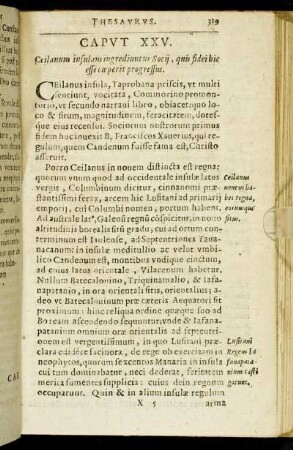 THESAVRVS. 329
CAPVT XXV.
Ceilanum insulam ingrediuntur Socij, quis fidei hic
esse cœperit progressus.
CEilanus insula, Taprobana priscis, vt multi
sentiunt, vocitata, Commorino promon-
torio, vt secundo narraui libro, obiacet: quo lo-
co & situ, magnitudinem, feracitatem, dotes-
que eius recensui. Sociorum nostrorum primus
in eam huc ingerit B. Franciscus Xauerius, qui re-
gulum, quem Candenum fuisse fama est, Christo
asseruit.
Porro Ceilanus in nouem distincta est regna:
quorum vnum quod ad occidentale insulæ latus
vergit, Columbinum dicitur, cinnanomi præ-
stantissimi ferax, arcem hic Lusitani ad primarij
emporij, cui Columbi nomen, portum habent.
Ad australe latus, Galenũ regnũ cõspicitur, in nono
altitudinis borealis sirũ gradu; cui ad ortum con-
terminum est Iaulense, ad Septentriones Taua-
nacanum: in insulæ meditullio ac velut vmbili-
co Candeanum est, montibus vndique cinctum,
ad cuius latus orientale, Vilacenum habetur.
Nullum Batecalouino, Triquinamalio, & Iafa-
napatanio, in ora orientali sitis, orientalius; a-
deo vt Batecalouinum præ cæteris Aequatori sit
proximum: hinc reliqua ordine quæque suo ad
Boream ascendendo sequuntur, vnde & Iafana-
patanium omnium oræ orientalis ad septentri-
onem est vergentissimum, in quo Lusitani præ-
clara edidere facinora, de rege ob exanimatos in
neophytos, quorum sexcentos Manaria in insula
cui tum dominabatur, neci dederat, sumentes
merita sumentes supplicia: cuius dein regnum
occuparunt. Quin & in alium insulæ regulum
X 5 arma
Ceilanus
nouem ha-
bet regna,
eorumque
situs.
Lusitani
Regem Ia
fanapata-
nium casti
garunt.